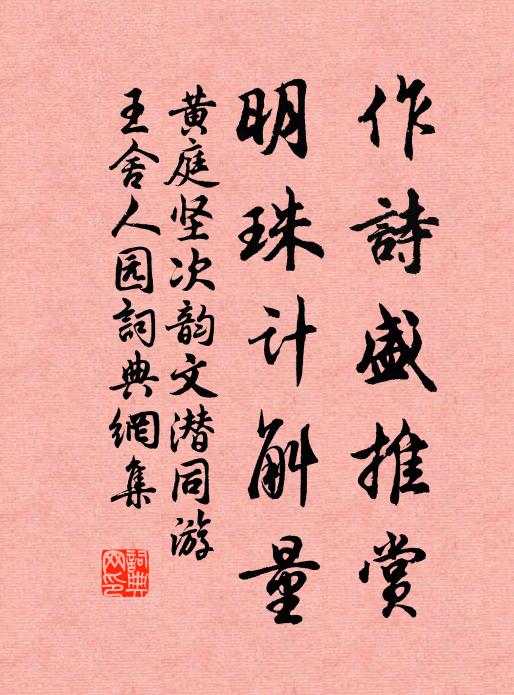 作詩盛推赏
明珠计斛量
黄庭坚次韵文潜同游
王舍人园詞典網集
詞典网印